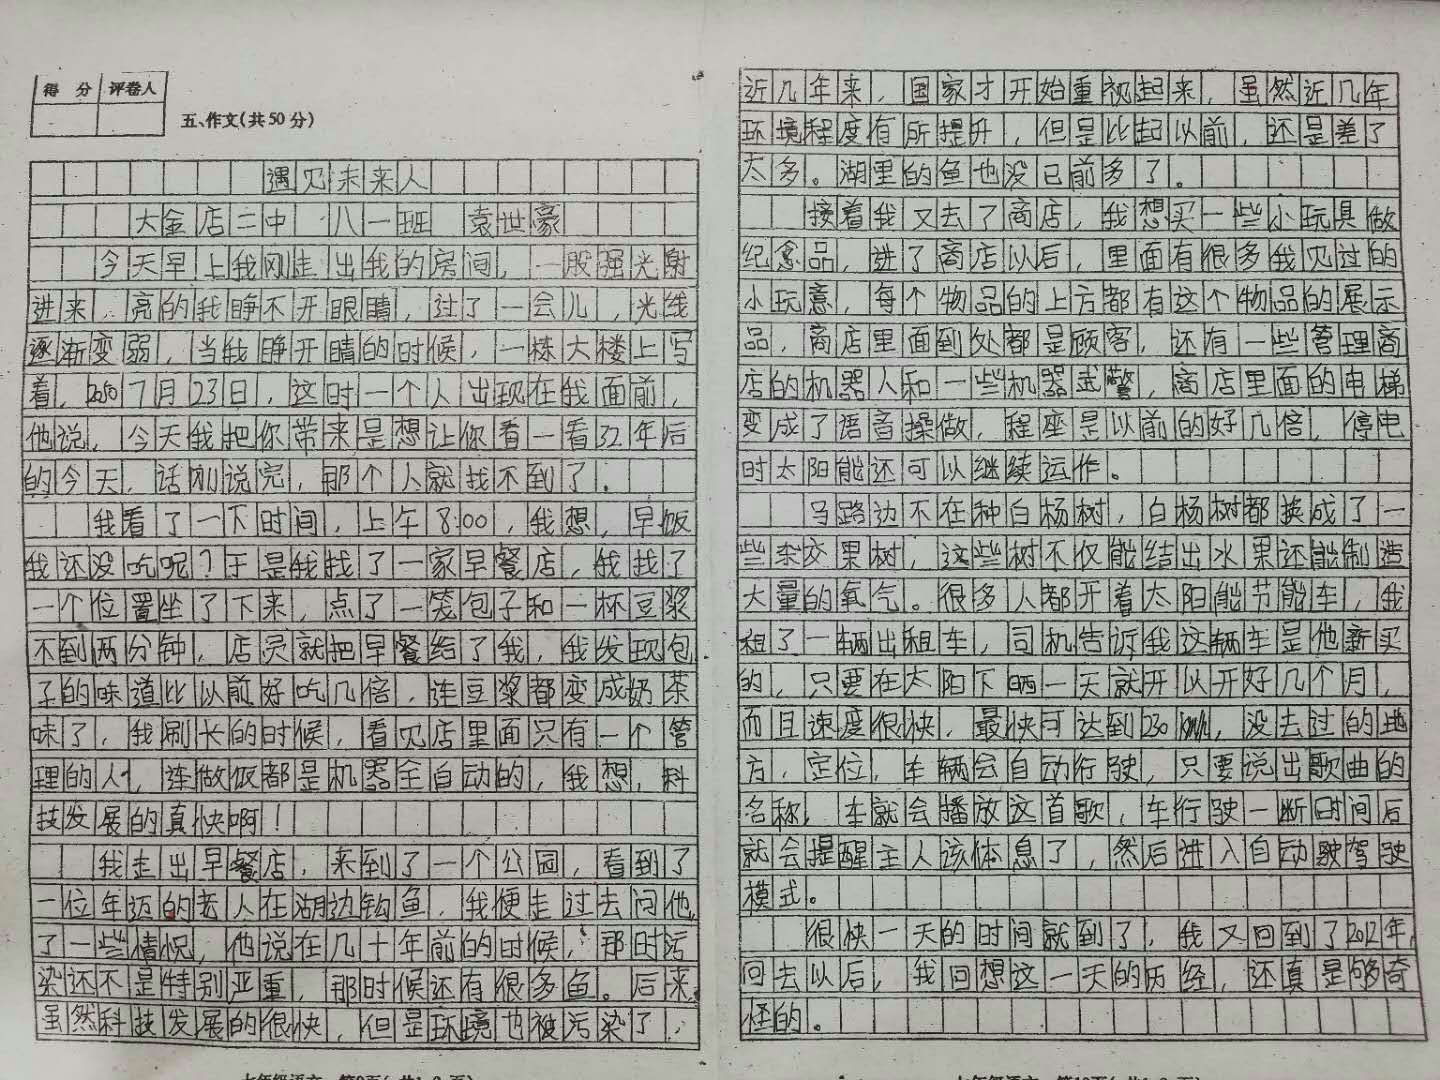 得 分 评卷人
五、作文(共50分)
遇见未来人
大金店二中 八一班 袁世豪
今天早上我刚走出我的房间,一股强光射
进来,亮的我睁不开眼睛,过了一会儿,光线
逐渐变弱,当我睁开睛的时候,一栋大楼上写
着,2050 7月23日,这时一个人出现在我面前,
他说,今天我把你带来是想让你看一看32年后
的今天,话刚说完,那个人就找不到了.
我看了一下时间,上午8:00,我想,早饭
我还没吃呢?于是我找了一家早餐店,我找了
一个位置坐了下来,点了一笼包子和一杯豆浆
不到两分钟,店员就把早餐给了我,我发现包
子的味道比以前好吃几倍.连豆浆都变成奶茶
味了,我刷长的时候,看见店里面只有一个管
理的人,连做饭都是机器全自动的,我想,科
技发展的真快啊!
我走出早餐店,来到了一个公园,看到了
一位年迈的老人在湖边钩鱼.我便走过去问他
了一些情况,他说在几十年前的时候,那时污
染还不是特别严重,那时候还有很多鱼。后来
虽然科技发展的很快,但是环境也被污染了,
近几年来,国家才开始重视起来,虽然近几年
环境程度有所提升,但是比起以前,还是差了
太多。湖里的鱼也没已前多了.
接着我又去了商店,我想买一些小玩具做
纪念品,进了商店以后,里面有很多我见过的
小玩意,每个物品的上方都有这个物品的展示
品,商店里面到处都是顾客,还有一些管理商
店的机器人和一些机器武警,商店里面的电梯
变成了语音操做,程座是以前的好几倍,停电
时太阳能还可以继续运作.
马路边不在种白杨树,白杨树都换成了一
些杂交果树,这些树不仅能结出水果还能制造
大量的氧气。很多人都开着太阳能节能车,我
租了一辆出租车,司机告诉我这辆车是他新买
的,只要在太阳下晒一天就开以开好几个月,
而且速度很快,最快可达到230 km/h,没去过的地
方,定位,车辆会自动行驶,只要说出歌曲的
名称,车就会播放这首歌,车行驶一断时间后
就会提醒主人该体息了,然后进入自动驶驾驶
模式。
很快一天的时间就到了,我又回到了2012年,
回去以后,我回想这一天的历经,还真是够奇
怪的。